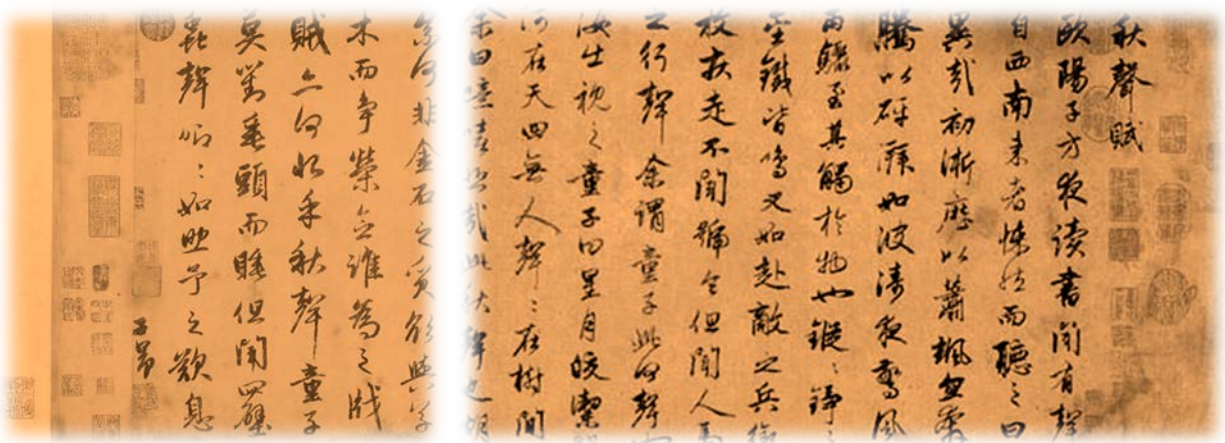 秋聲賦
歐陽子方夜读書聞有聲
自西南来者悚然而聽之曰
異哉初淅瀝以蕭颯忽奔
騰以砰湃如波濤夜驚風
雨驟至其觸於物也鏦〻錚〻
金鐵皆鳴又如赴敵之兵銜
枚疾走不聞號令但聞人馬
之行聲余謂童子此何聲也
汝出視之童子曰星月皎潔
河在天四無人聲〻在樹間
余曰噫嘻悲哉此秋聲也胡
奈何非金石之質欲與草
木而争榮念誰為之戕
賊亦何恨乎秋聲童子
莫對垂頭而睡但聞四壁
蟲聲唧〻如助予之歎息
子昂